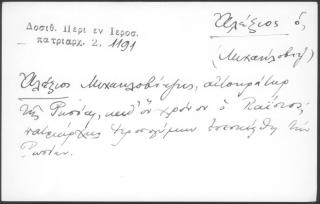 Δοσιθ. Περι εν Ιεροσ.
πατριαρχ. 2. 1191
Ἀλέξιος ὁ,
(Μιχαήλοβιτζ)
Ἀλέξιος Μιχαηλοβίτζης, αὐτοκράτωρ
τῆς Ρωσίας, καθ' ὃν χρόνον ὁ Παΐσιος
πατριάρχης Ἱεροσολύμων ἐπεσκέφθη τὴν
Ρωσίαν.